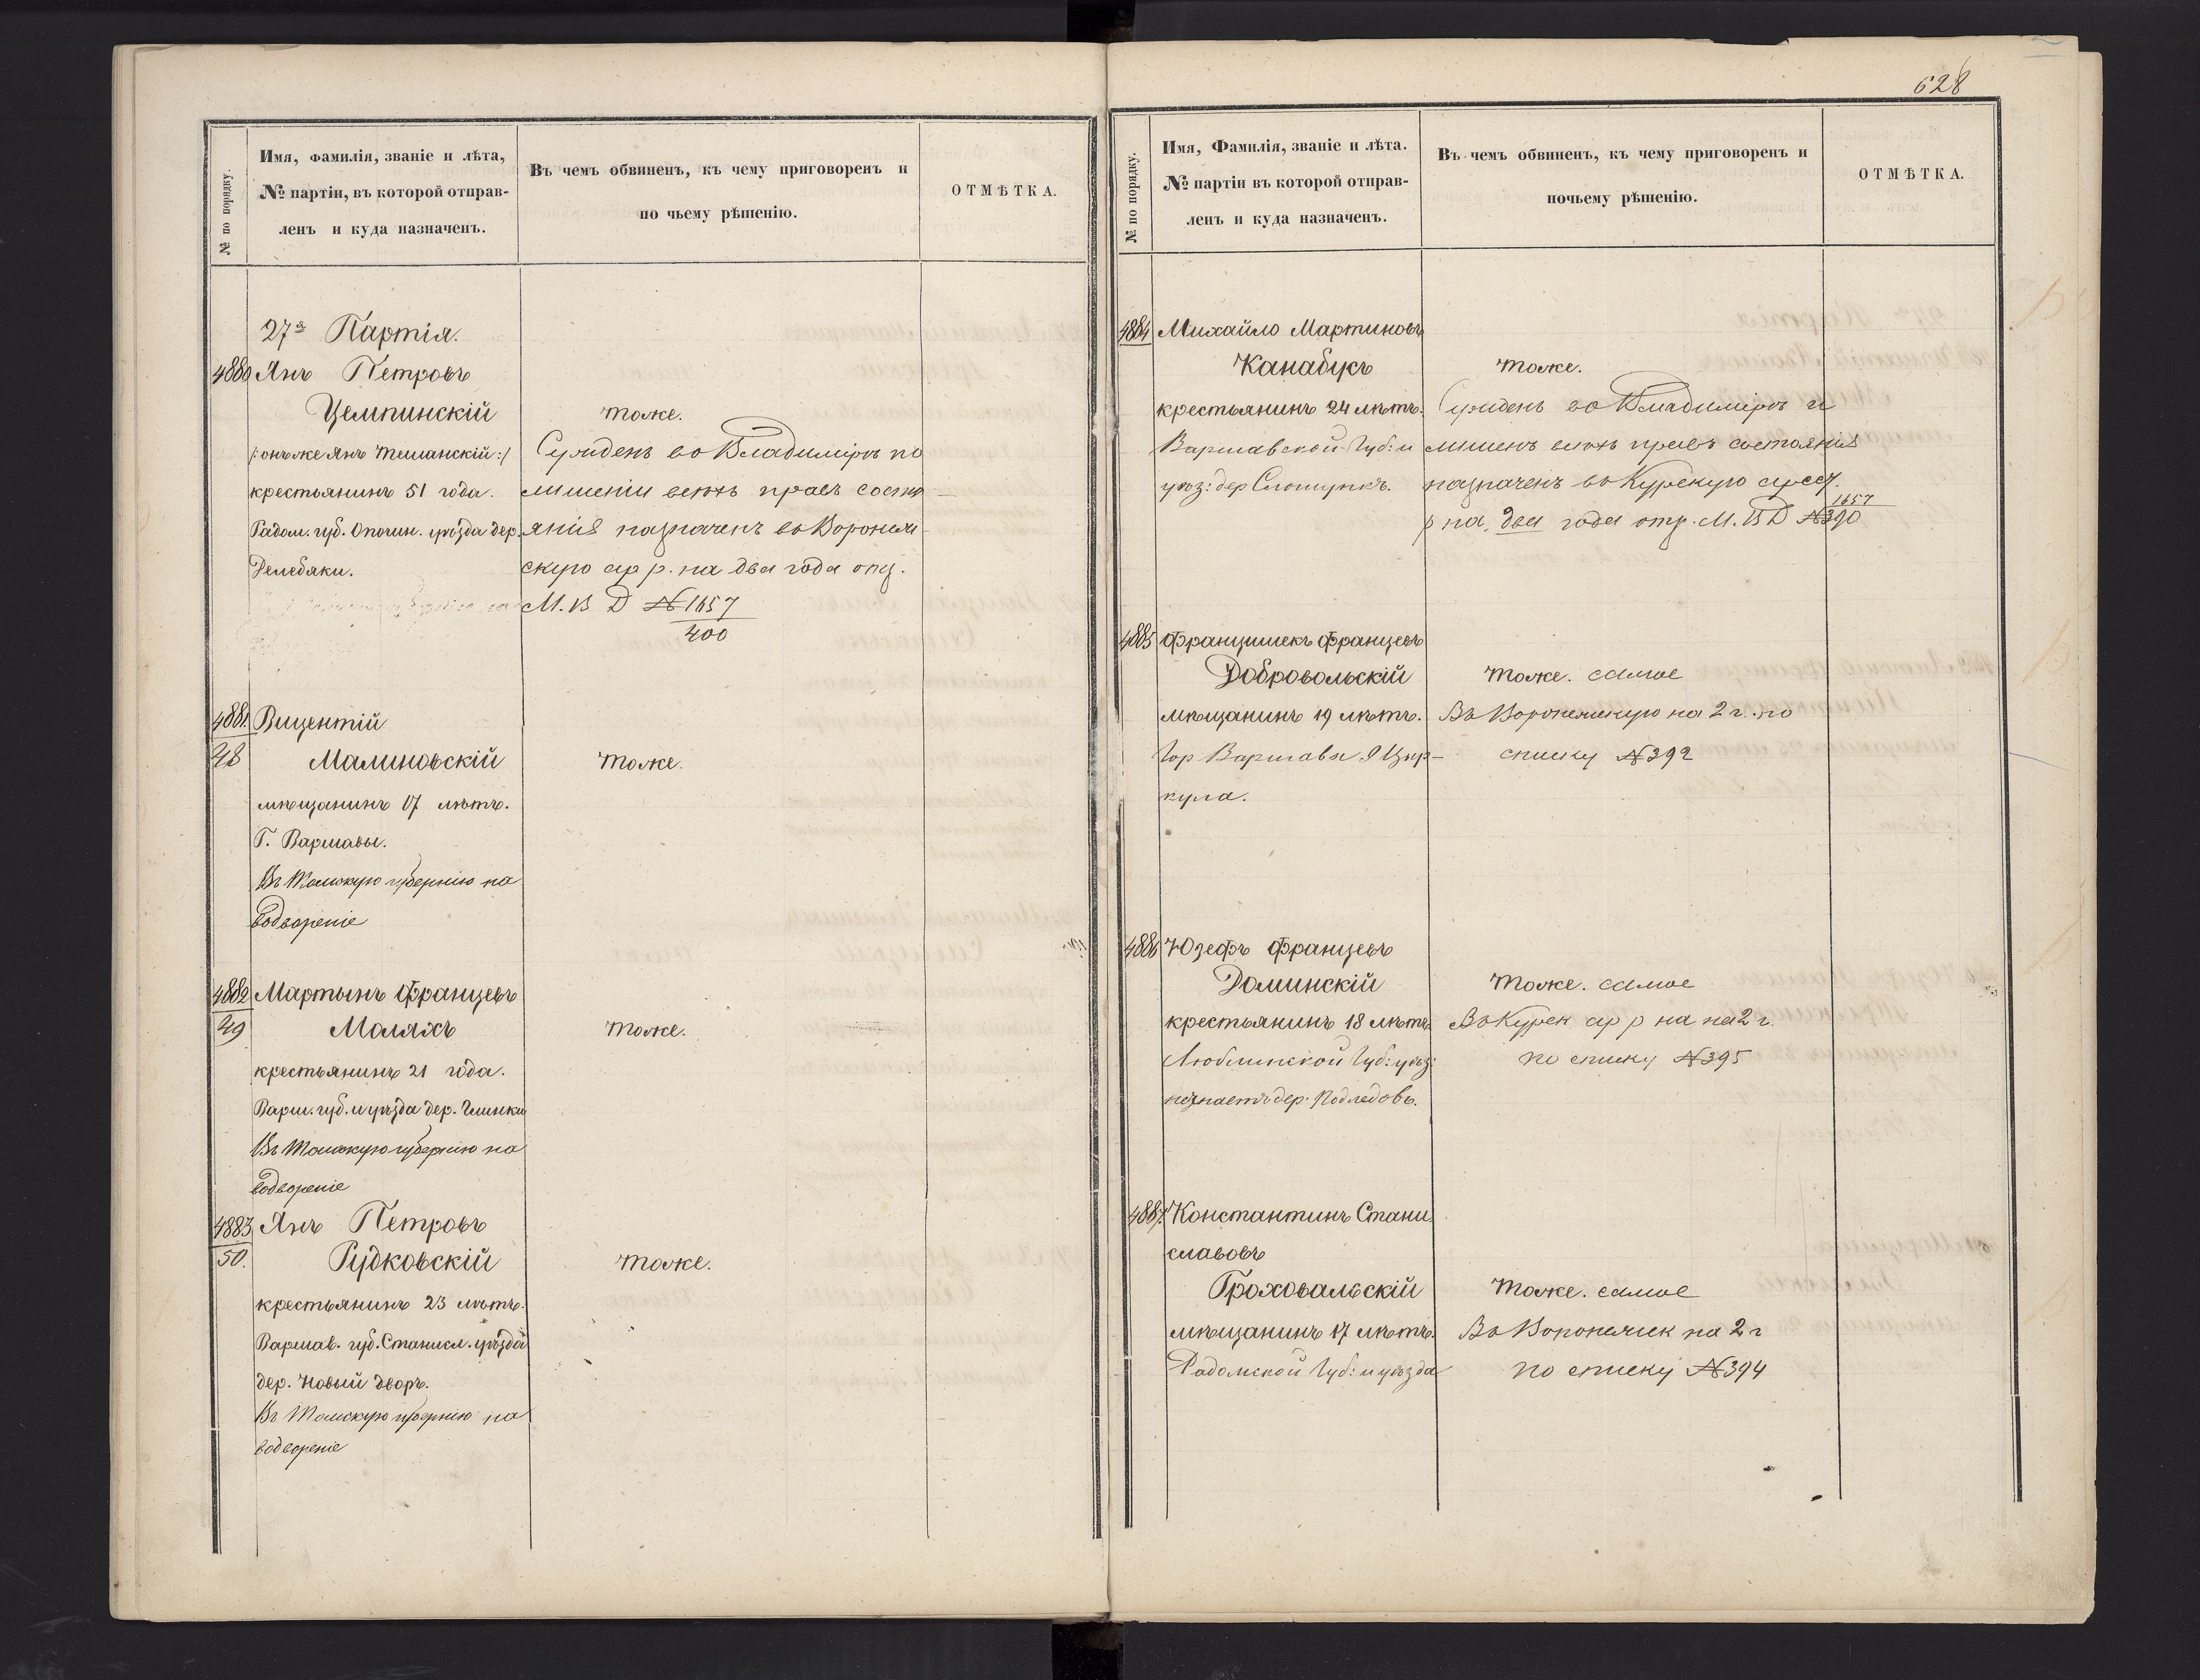 № по порядку.
Имя, фамилія, званіе и лѣта,
№ партіи, въ которой отправ-
ленъ и куда назначенъ.
Въ чемъ обвиненъ, къ чему приговоренъ и
по чьему рѣшенію.
ОТМѢТКА.
27я Партія.
4880 Янъ Петровъ
Цемпинскій
тоже.
/:онъ же Янъ Тешанскій:/
крестьянинъ 51 года.
Радом. губ. Опочин. уѣзда дер.
Делебяки.
Сужденъ во Владиміръ по
лишеніи всѣхъ правъ состо
янія назначенъ въ Воронеж
скую ар р. на два года отц.
М. В Д № 1657
400
4881 Вицентій
48
Малиновскій
тоже.
мѣщанинъ 17 лѣтъ.
Г. Варшавы.
Въ Томскую губернію на
водвореніе
4882 Мартынъ Францевъ
49
Маляхъ
тоже.
крестьянинъ 21 года.
Варш. губ. и уѣзда дер. Глинки
Въ Томскую губернію на
водвореніе
4883 Янъ Петровъ
50.
Рудковскій
тоже.
крестьянинъ 23 лѣтъ.
Варшав. губ. Станисл. уѣзда
дер. Новый дворъ.
Въ Томскую губернію на
водвореніе
628
№ по порядку.
Имя, Фамилія, званіе и лѣта.
№ партіи въ которой отправ-
ленъ и куда назначенъ.
Въ чемъ обвиненъ, къ чему приговоренъ и
почьему рѣшенію.
ОТМѢТКА.
4884 Михайло Мартиновъ
Канабукъ
тоже.
крестьянинъ 24 лѣтъ.
Варшавской Губ: и
уѣз: дер
Сужденъ во Владиміръ и
лишенъ всѣхъ правъ состоянія
назначенъ въ Курскую арест.
р на два года отр. М. В Д № 1657
390
4885 Францишекъ Францевъ
Добровольскій
тоже. самое
мѣщанинъ 19 лѣтъ.
Гор Варшавы 9 Цир-
кула.
Въ Воронежскую на 2 г. по
списку № 392
4886 Юзефъ Францевъ
Доминскій
тоже. самое
крестьянинъ 18 лѣтъ
Люблинской Губ: уѣз:
незнаетъ дер. Подледовъ.
Въ Курск ар р на на 2 г.
по списку № 395
4887. Константинъ Стани
славовъ
Гроховальскій
тоже. самое
мѣщанинъ 17 лѣтъ.
Радомской Губ: и уѣзда
Въ Воронежск на 2 г
по списку № 394